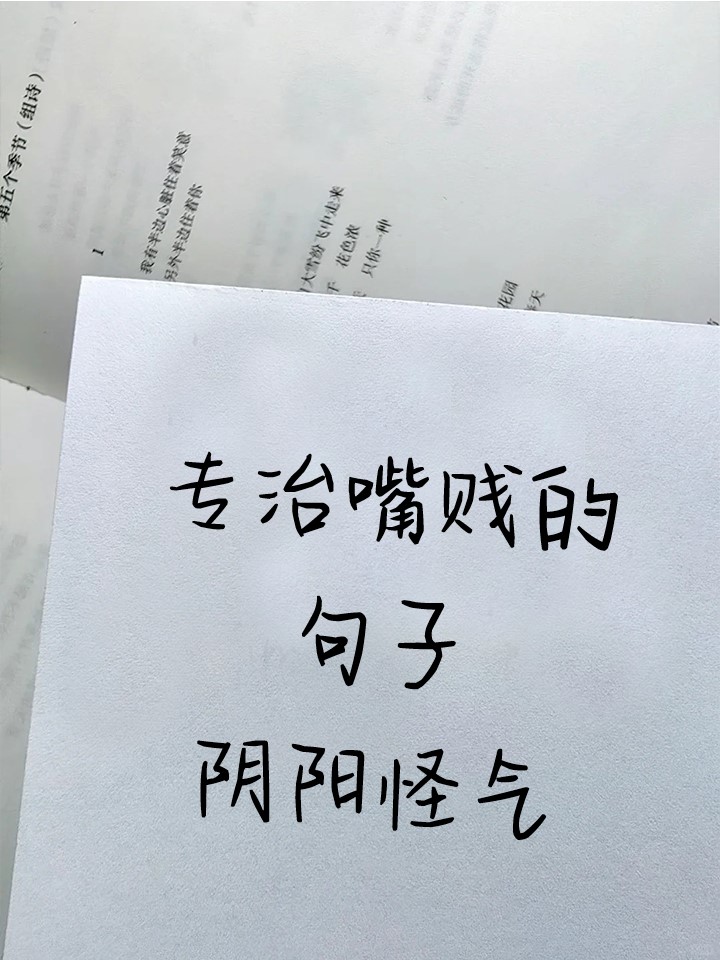 第五个季节（组诗）
1
我有半边心脏住着笑意
另外半边住着你
大雪纷飞中走来
花色浓
只你一种
花园
专治嘴贱的
句子
阴阳怪气